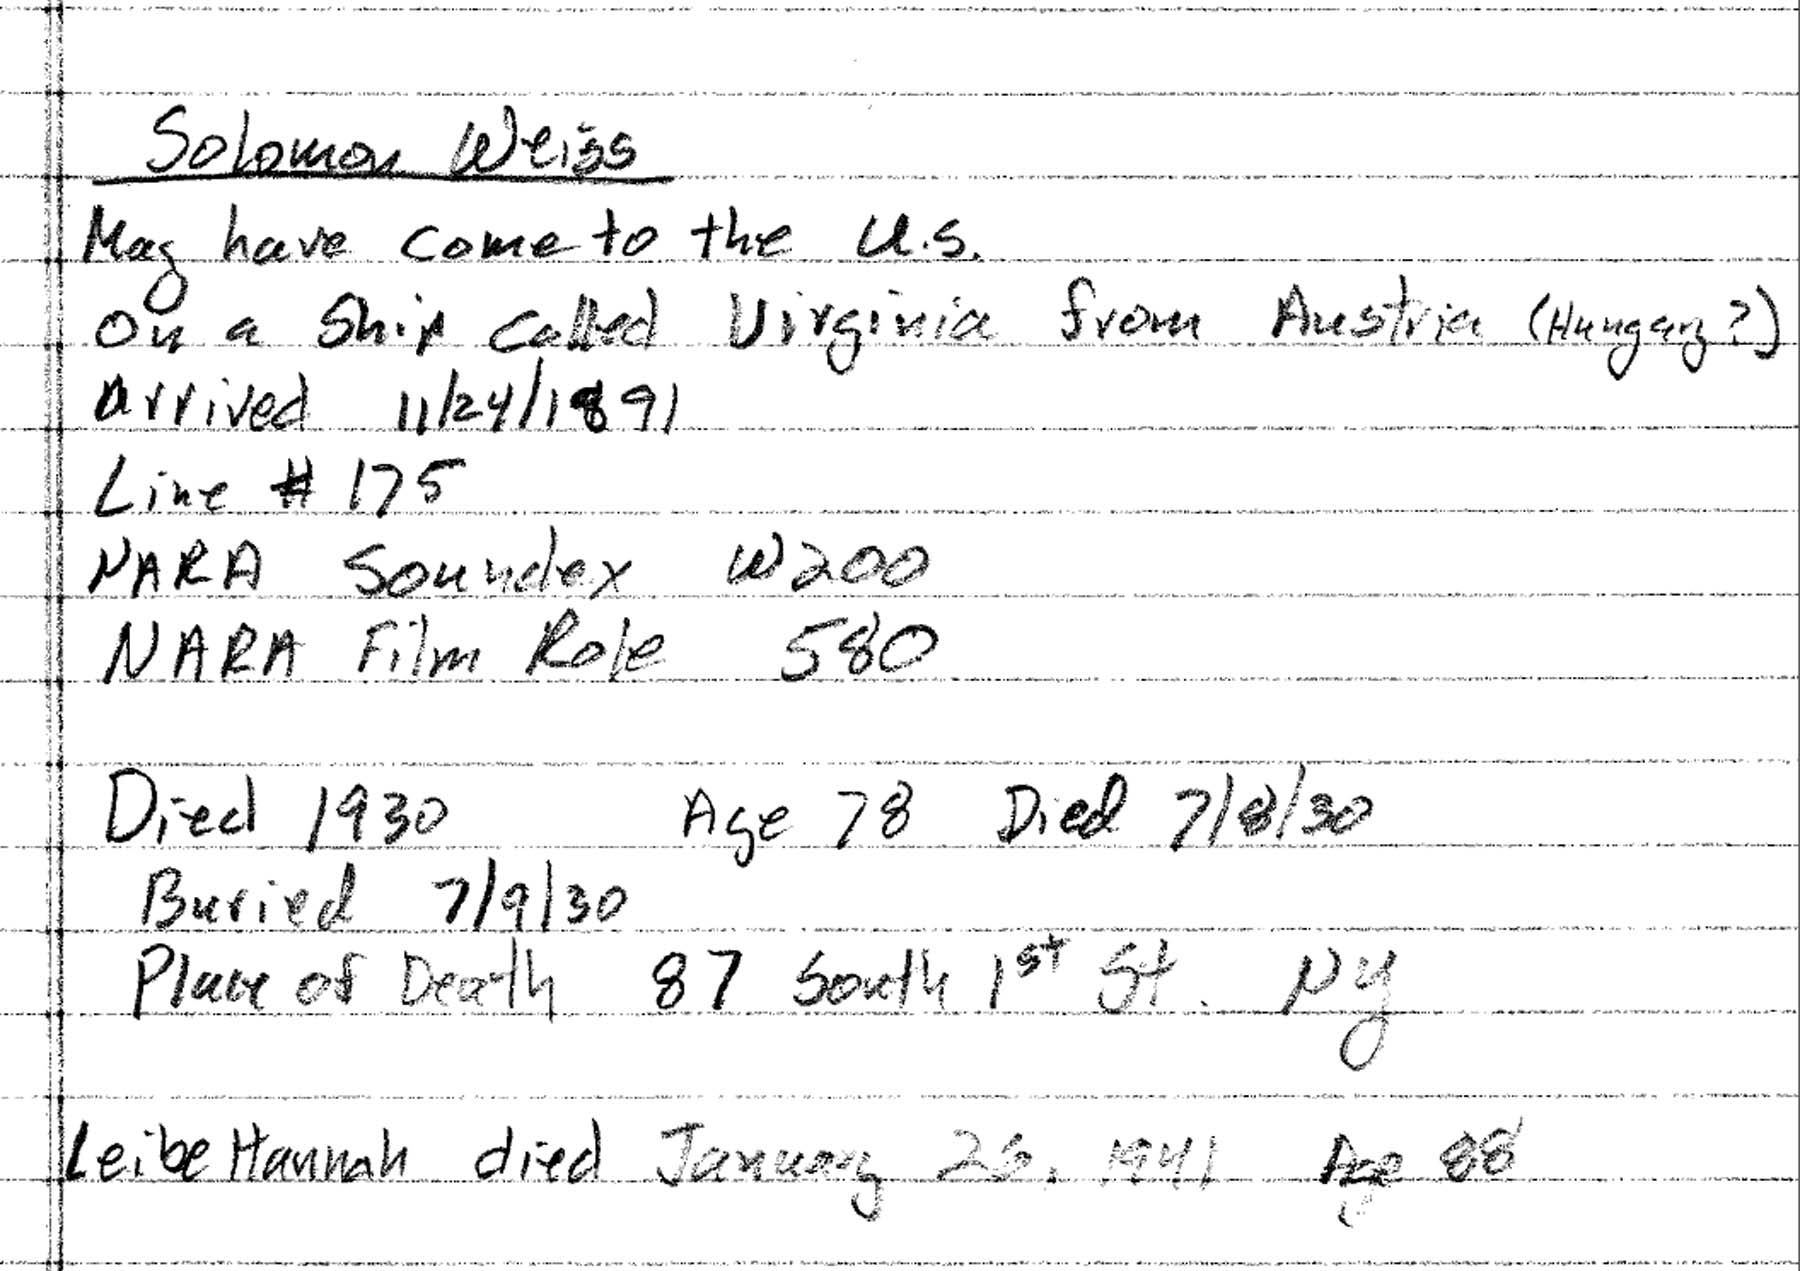 Solomon Weiss
May have come to the U.S.
On a Ship called Virginia from Austria (Hungary?)
Arrived 11/24/1891
Line # 175
NARA Soundex W200
NARA Film Role 580
Died 1930 Age 78 Died 7/8/30
Buried 7/9/30
Place of Death 87 South 1st St. NY
Leibe Hannah died January 26, 1941 Age 88